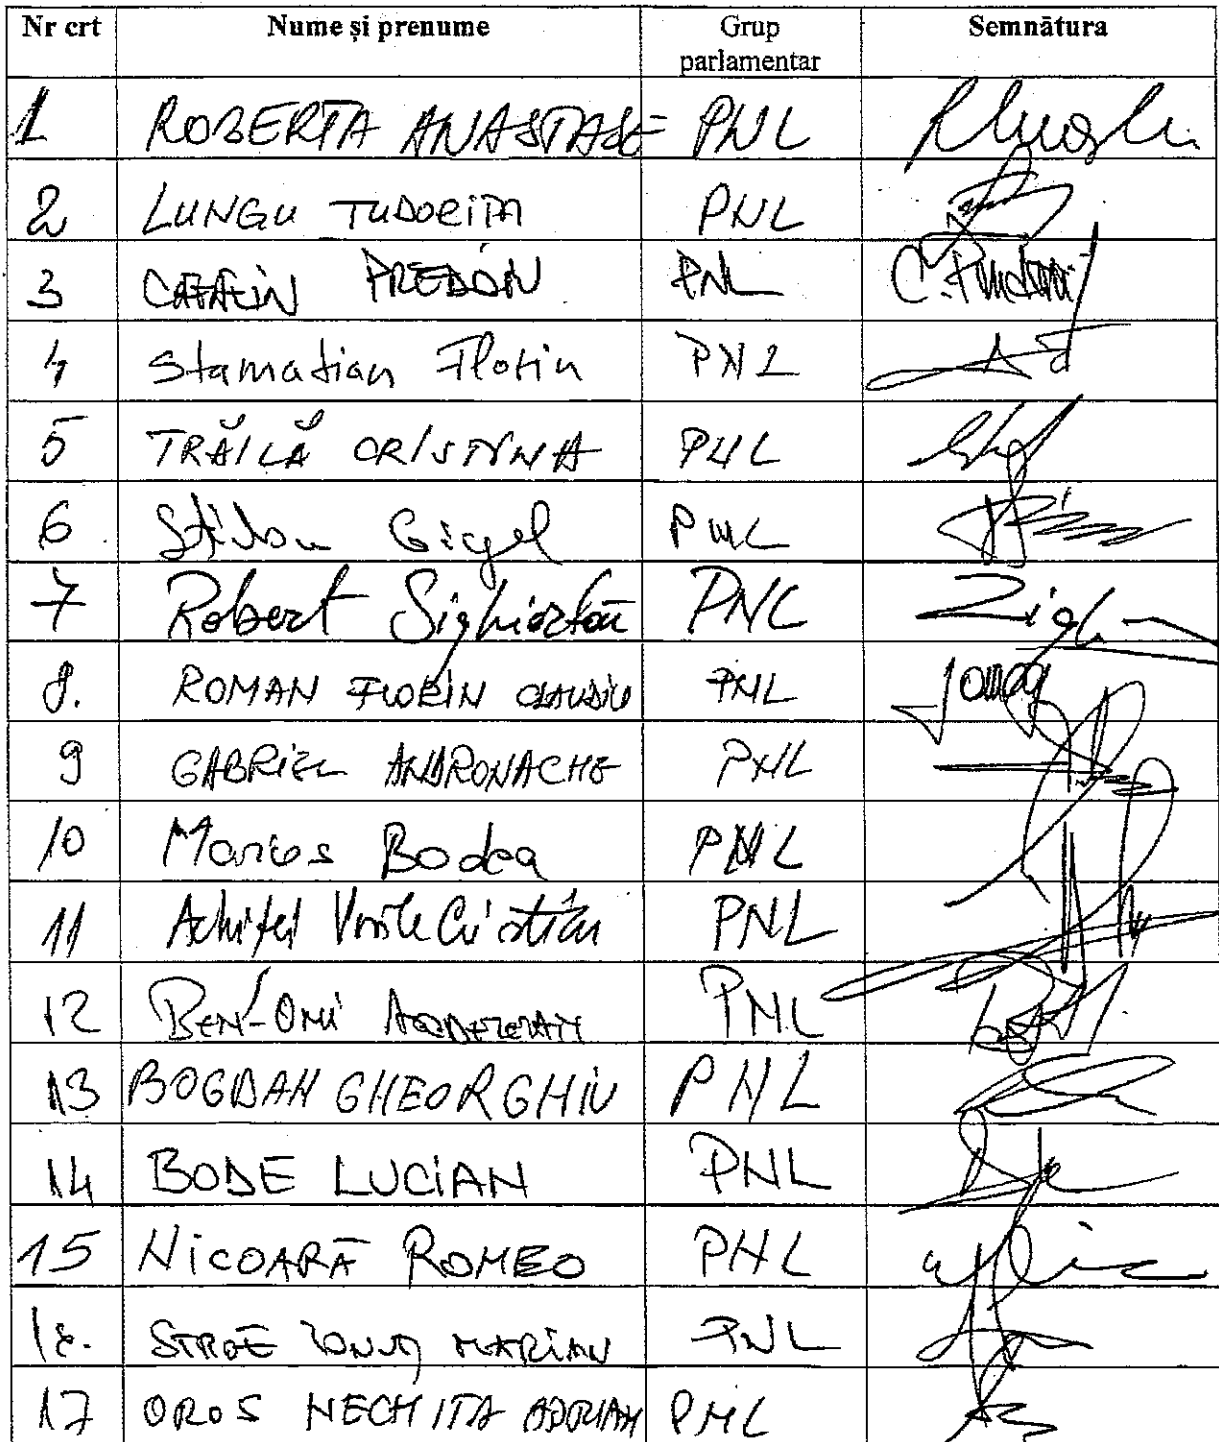 Nr crt Nume și prenume Grup parlamentar Semnătura
1 ROBERTA ANASTASE PNL
2 LUNGU TUDORIȚA PNL
3 CĂTĂLIN PREDOIU PNL C. Predoiu
4 Stamatian Florin PNL
5 TRĂILĂ CRISTINA PNL
6 Știrbu Gigel PNL
7 Robert Sighiartău PNL
8. ROMAN FLORIN CLAUDIU PNL
9 GABRIEL ANDRONACHE PNL
10 Marius Bodea PNL
11 Achiței Vasile Cristian PNL
12 BEN-ONI ARDELEAN PNL
13 BOGDAN GHEORGHIU PNL
14 BODE LUCIAN PNL
15 NICOARĂ ROMEO PNL
16. STROE IONUȚ MARIAN PNL
17 OROS NECHITA ADRIAN PNL